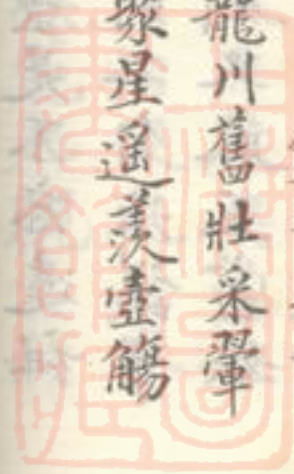 龍川舊壯采翚
聚星遥羨壺觴